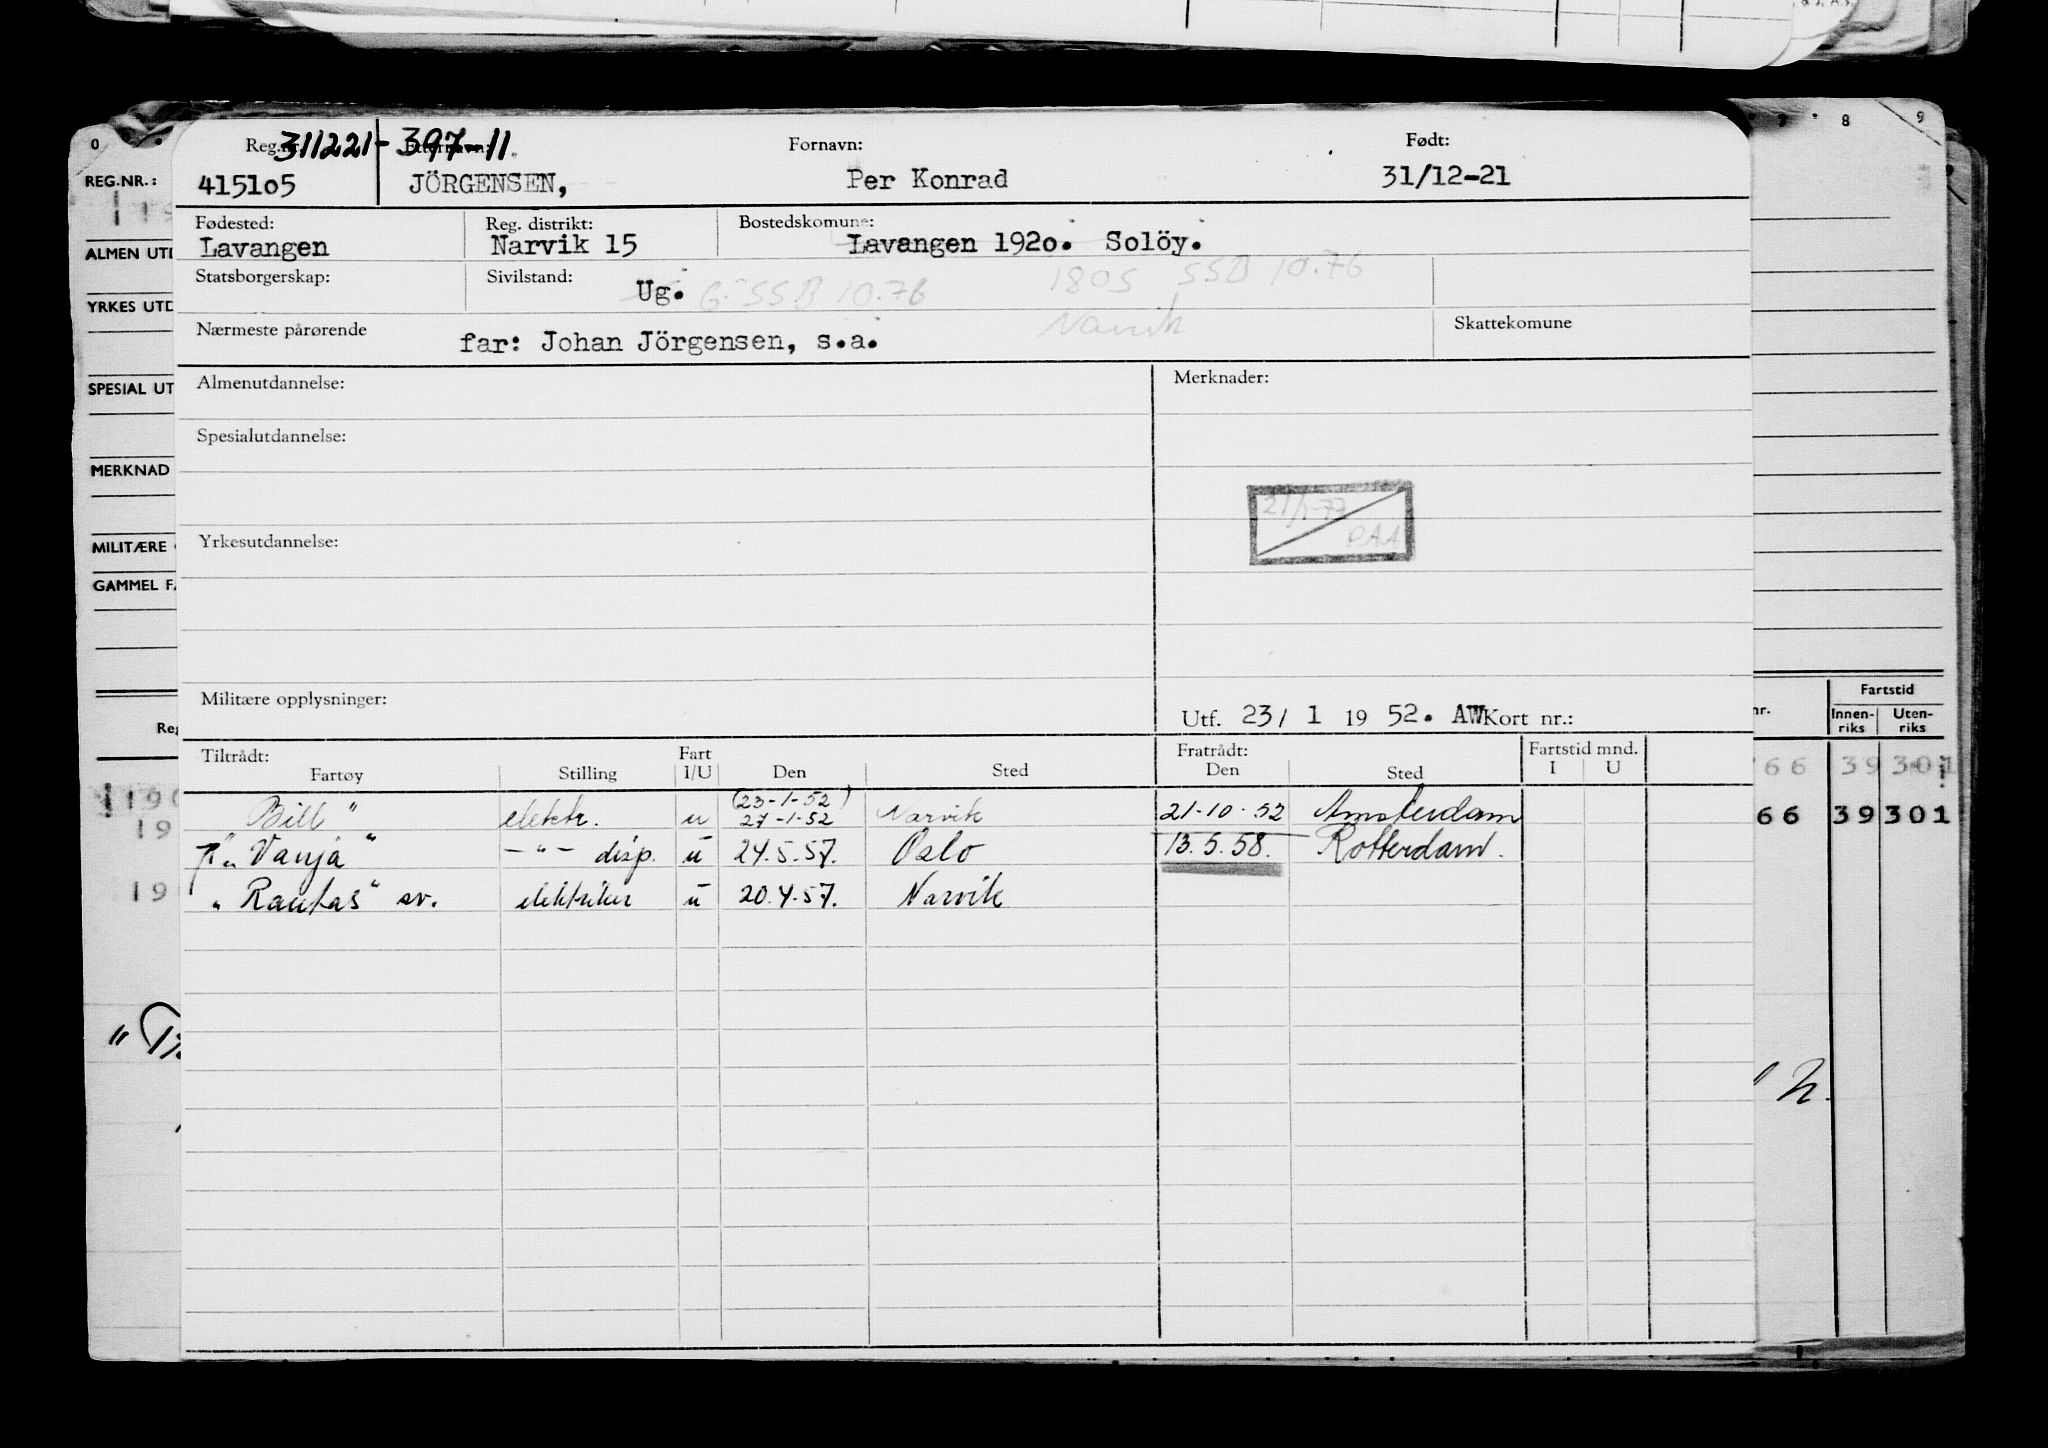 0 7 8 9
Reg.nr. 311221-397-11. Etternavn: Fornavn: Født:
REG.NR.: 415105 JÖRGENSEN, Per Konrad 31/12-21
Fødested: Reg. distrikt: Bostedskomune:
ALMEN UTD Lavangen Narvik 15 Lavangen 1920. Solöy.
Statsborgerskap: Sivilstand: Ug. G. SSB 10.76 1805 SSB 10.76
YRKES UTD Nærmeste pårørende far: Johan Jörgensen, s.a. Narvik Skattekomune
SPESIAL UT Almenutdannelse: Merknader:
Spesialutdannelse:
MERKNAD
21/1-77
PAA
MILITÆRE Yrkesutdannelse:
GAMMEL FA
Militære opplysninger: Utf. 23/ 1 19 52. AW Kort nr.:
Fartstid
Reg nr. Innen-riks Uten-riks
Tiltrådt: Fart Fratrådt: Fartstid mnd.
Fartøy Stilling I/U Den Sted Den Sted I U
66 39 301
Bill" elektr. u (23-1-52) 27-1-52 Narvik 21-10-52 Amsterdam 66 39 301
"Vanja" -"- disp. u 24.5.57. Oslo 13.5.58. Rotterdam.
"Rautas" sv. elektriker u 20.4.57. Narvik